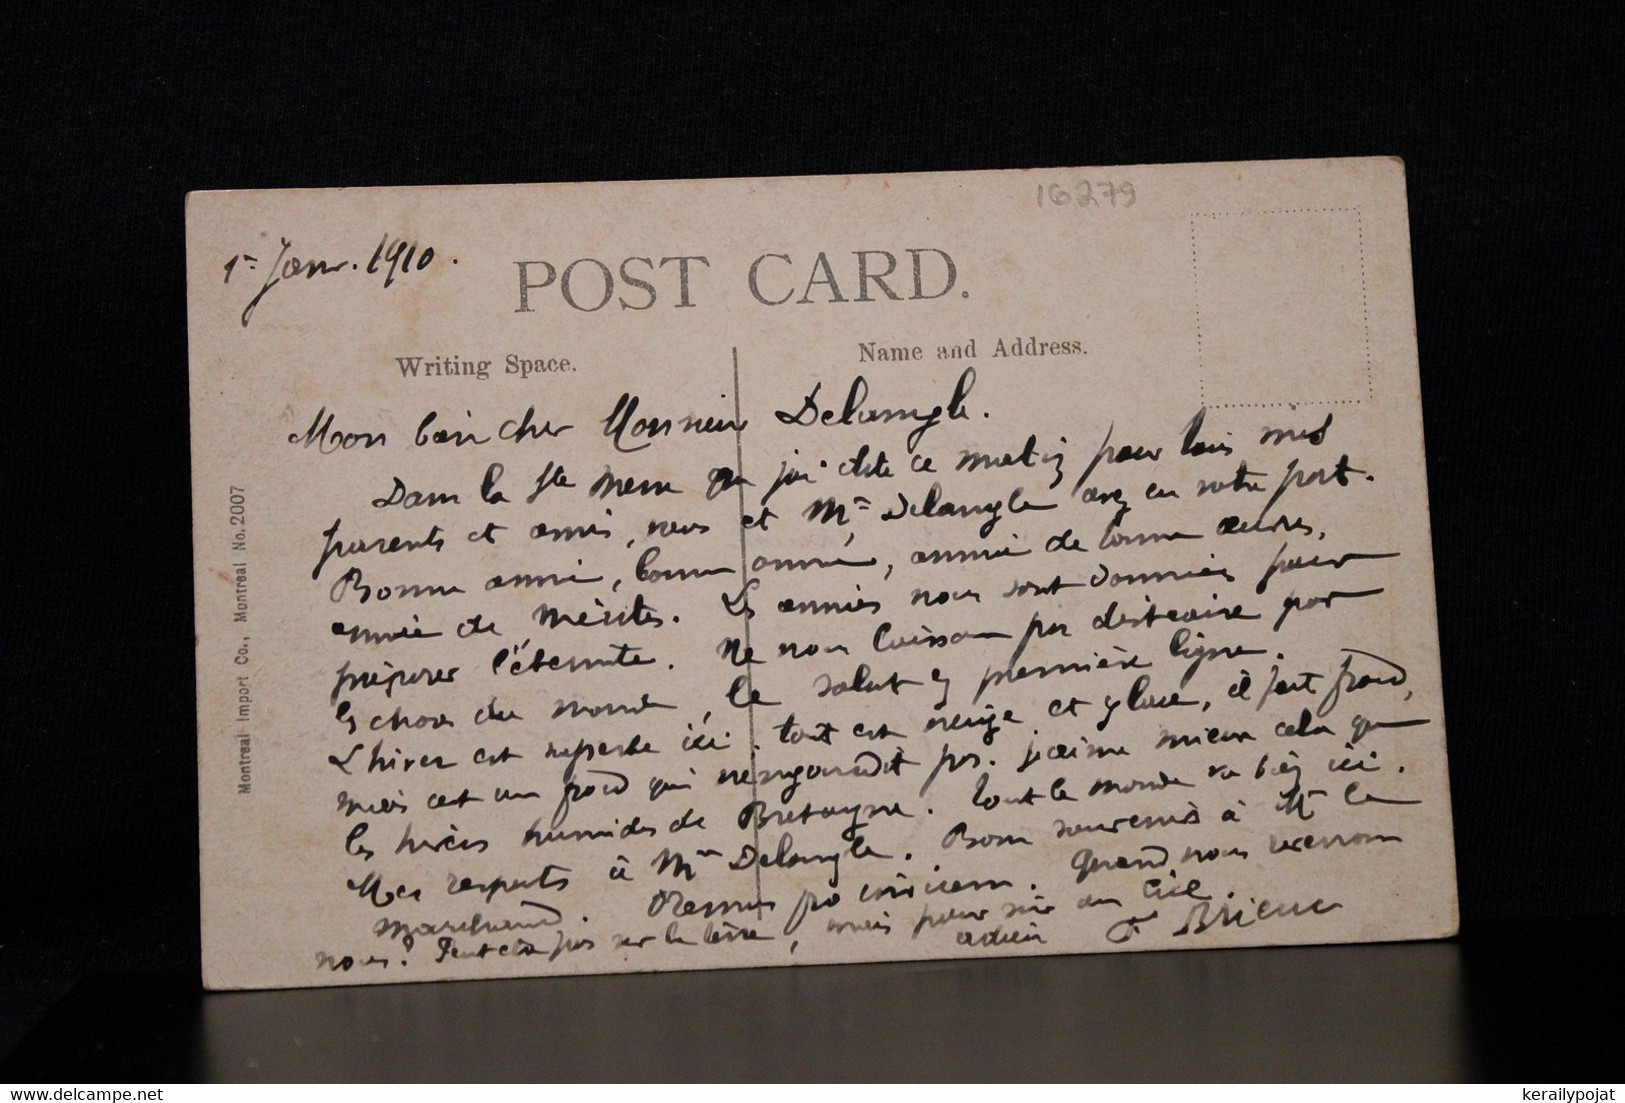 16279
1er Janv. 1910.
POST CARD.
Writing Space.
Name and Address.
Montreal Import Co., Montreal No. 2007
Mon bien cher Monsieur Delangle.
Dans la Ste Messe que j'ai dite ce matin pour tous mes
parents et amis, vous et Mme Delangle avez eu votre part.
Bonne année, bonne année, année de bonnes œuvres,
année de mérites. Les années nous sont données pour
préparer l'éternité. Ne nous laissons pas distraire par
les choses du monde, le salut en première ligne.
L'hiver est superbe ici. tout est neige et glace, il fait froid,
mais c'est un froid qui n'engourdit pas. j'aime mieux cela que
les hivers humides de Bretagne. Tout le monde va bien ici.
Mes respects à Mme Delangle. Bons souvenirs à Mr Le
Marchand. Oremus pro invicem. Quand nous reverrons
nous? Peut-être pas sur la terre, mais pour sûr au Ciel
adieu
F Brieuc
kerailypojat